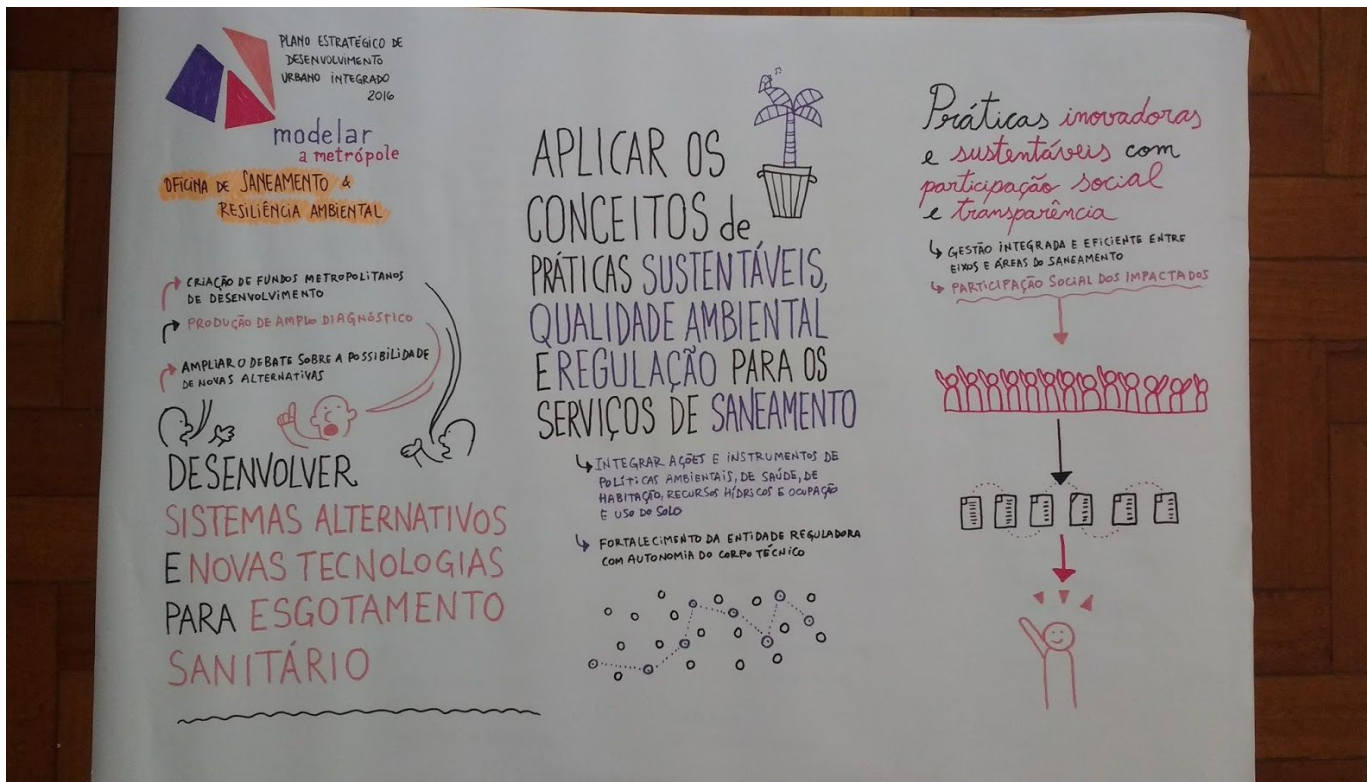 PLANO ESTRATÉGICO DE
DESENVOLVIMENTO
URBANO INTEGRADO
2016
modelar
a metrópole
OFICINA DE SANEAMENTO &
RESILIÊNCIA AMBIENTAL
CRIAÇÃO DE FUNDOS METROPOLITANOS
DE DESENVOLVIMENTO
PRODUÇÃO DE AMPLO DIAGNÓSTICO
AMPLIAR O DEBATE SOBRE A POSSIBILIDADE
DE NOVAS ALTERNATIVAS
DESENVOLVER
SISTEMAS ALTERNATIVOS
E NOVAS TECNOLOGIAS
PARA ESGOTAMENTO
SANITÁRIO
APLICAR OS
CONCEITOS de
PRÁTICAS SUSTENTÁVEIS,
QUALIDADE AMBIENTAL
E REGULAÇÃO PARA OS
SERVIÇOS DE SANEAMENTO
INTEGRAR AÇÕES E INSTRUMENTOS DE
POLÍTICAS AMBIENTAIS, DE SAÚDE, DE
HABITAÇÃO, RECURSOS HÍDRICOS E OCUPAÇÃO
E USO DO SOLO
FORTALECIMENTO DA ENTIDADE REGULADORA
COM AUTONOMIA DO CORPO TÉCNICO
Práticas inovadoras
e sustentáveis com
participação social
e transparência
GESTÃO INTEGRADA E EFICIENTE ENTRE
EIXOS E ÁREAS DO SANEAMENTO
PARTICIPAÇÃO SOCIAL DOS IMPACTADOS